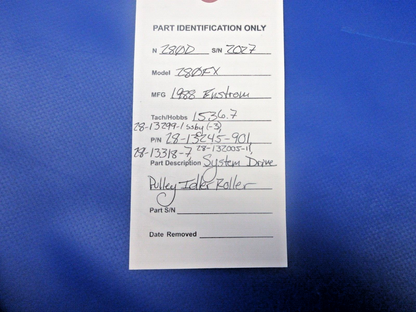 PART IDENTIFICATION ONLY
N 280D S/N 2027
Model 280FX
MFG 1988 Enstrom
Tach/Hobbs 1536.7
28-13299-1 assy (-3)
P/N 28-13245-901
28-13318-7 28-132005-11
Part Description System Drive
Pulley Idler Roller
Part S/N
Date Removed